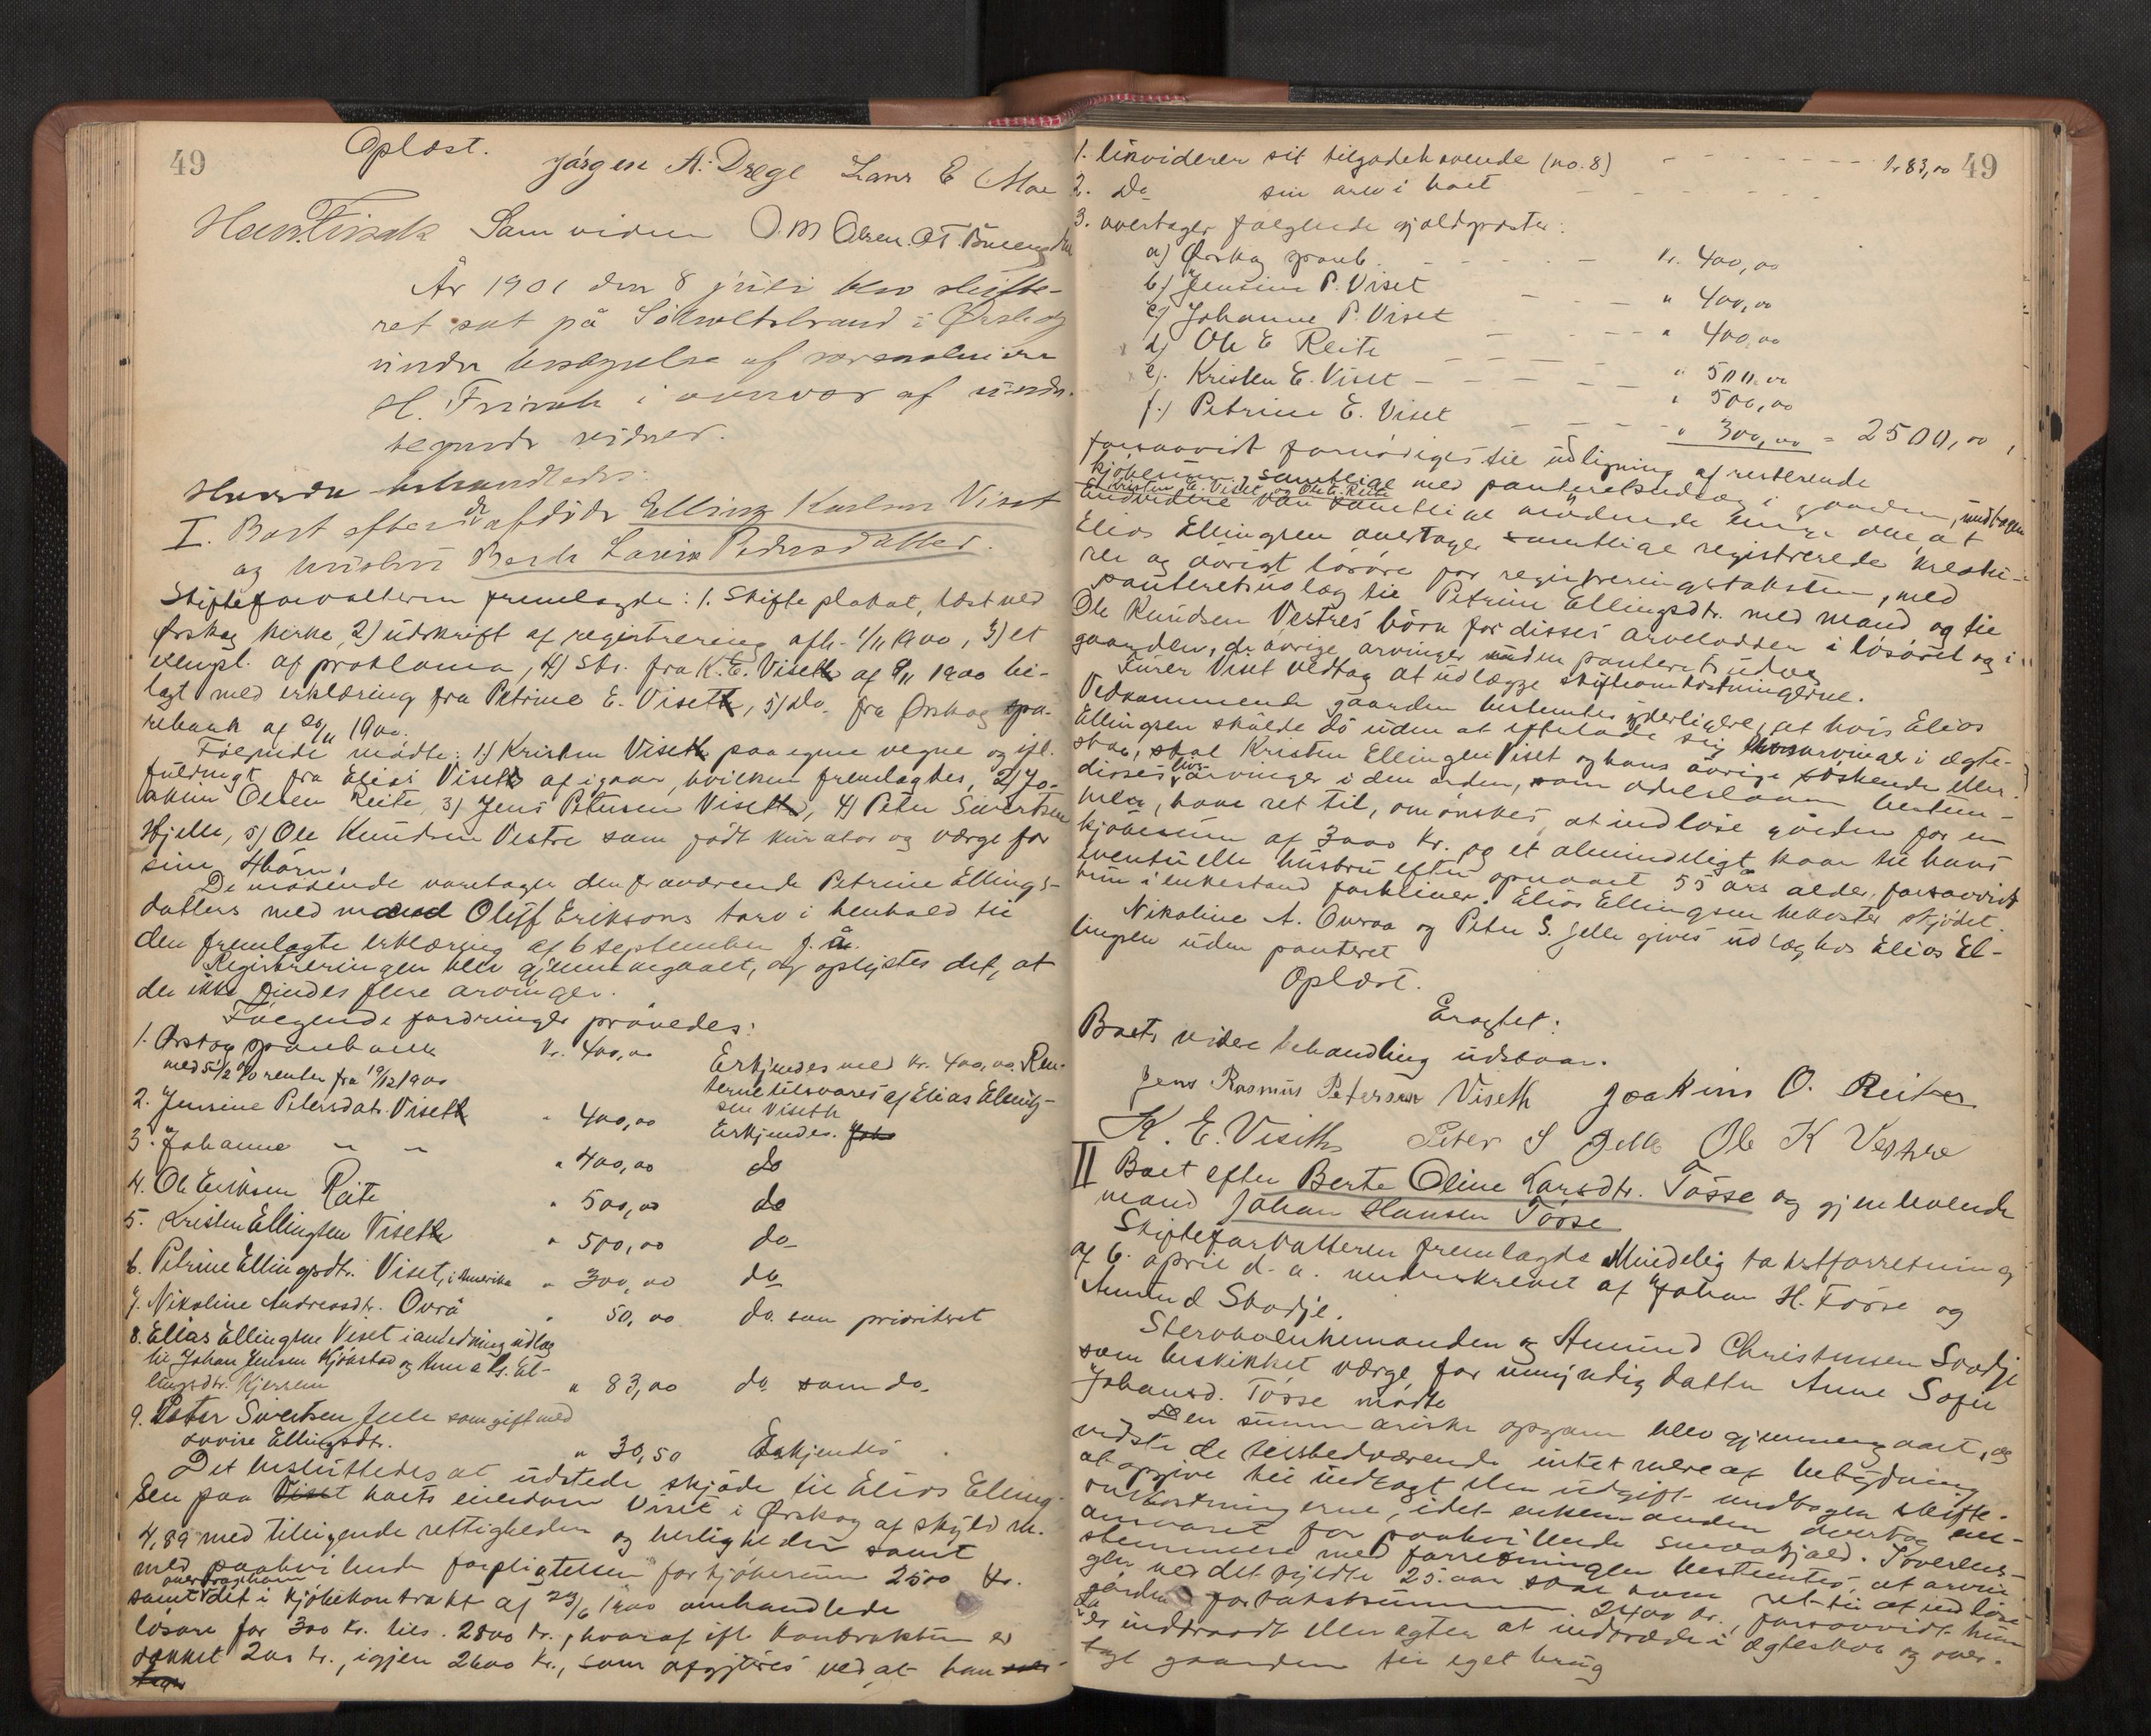 49
Oplæst.
Jørgen A. Drege Lars E Moe
Samvidne O. M Olsen.
År 1901 den 8 juli blev skifte-
ret sat på Sølvoltstrand i Ørskog
under bestyrelse af sorenskriver
H. Frisak i overvær af under-
tegnede vidner.
Hvorda behandledes:
I. Boet efter de afdøde Elling Knudsen Viset
og hustru Berte Lovise Pedersdatter.
Skifteforvalteren fremlagde: 1. Skifteplakat, læst ved
Ørskog kirke, 2) udskrift af registrering afh. 1/11 1900, 3) et
exempl. af proklama, 4) Skr. fra K. E. Viseth af 9/11 1900 bi-
lagt med erklæring fra Petrine E. Viseth, 5) Do. fra Ørskog spa-
rebank af 20/11 1900.
Følgende mødte: 1) Kristen Viseth paa egne vegne og ifl.
fuldmagt fra Elias Viseth af igaar, hvilken fremlagdes, 2) Jo-
akim Olsen Reite, 3) Jens Petersen Viseth, 4) Peter Sivertsen
Hjelle, 5) Ole Knudsen Vestre som født kurator og værge for
sine 4 børn.
De mødende varetager den fraværende Petrine Ellings-
datters med mand Oluf Eriksons tarv i henhold til
den fremlagte erklæring af 6 september f. å.
Registreringen blev gjennemgaaet, og oplystes det, at
der ikke findes flere arvinger.
Følgende fordringer prøvedes:
1. Ørskog sparebank Kr. 400,00 Erkjendes med kr. 400,00. Ren-
med 5 1/2 % renter fra 19/12 1900 terne tilsvares af Elias Elling-
sen Viseth
2. Jensine Petersdatr. Viseth " 400,00 Erkjendes.
3. Johanne " " " 400,00 do
4. Ole Eriksen Reite " 500,00 do
5. Kristen Ellingsen Viseth " 500,00 do
6. Petrine Ellingsdtr. Viset, i Amerika " 300,00 do
7. Nikoline Andreasdtr. Ovrå " 50,00 do. som prioriteret
8. Elias Ellingsen Viset i anledning udlæg
til Johan Jensen Kjøkstad og El-
lingsdtr. Hjerrem " 83,00 do. som do.
9. Peter Sivertsen Jelle som gift med
Lovise Ellingsdtr. " 30,50 Erkjendes
Det besluttedes at udstede skjøde til Elias Elling-
sen paa boets eiendom Viset i Ørskog af skyld m.
4,89 med tilliggende rettigheder og herligheder samt
med paahvilende forpligtelser for kjøbesum 2500 kr.
samt overdragelsen
det i kjøbekontrakt af 23/6 1900 omhandlede
løsøre for 300 kr. tils. 2800 kr., hvoraf ifl. kontrakten er
dækket 200 kr., igjen 2600 kr., som afgjøres ved at han
1. likviderer sit tilgodehavende (no. 8) - - - - kr 83,00 49
2. Do sin arv i boet
3. overtager følgende gjældsposter:
a) Ørskog spareb. - - - kr. 400,00
b) Jensine P. Viset - - - " 400,00
c) Johanne P. Viset - - - " 400,00
d) Ole E Reite - - - " 500,00
e) Kristen E. Viset - - - " 500,00
f.) Petrine E. Viset - - - " 300,00 = 2500,00,
forsaavidt fornødiges til udligning af resterende
kjøbesum, samtlige med panteretsudlæg i gaarden, undtagen
Kristen E. Viset og Ole E. Reite
Endvidere var samtlige mødende enige om, at
Elias Ellingsen overtager samtlige registrerede kreatu-
rer og øvrigt løsøre for registreringstaksten, med
panteretsudlæg til Petrine Ellingsdtr. med mand og til
Ole Knudsen Vestres børn for disses arvelodder i løsøret og i
gaarden, de øvrige arvinger uden panteretsudlæg
Viset vedtog at udlægge skifteomkostningerne.
Vedkommende gaarden bestemtes yderligere, at hvis Elias
Ellingsen skulde dø uden at efterlade sig livsarvinger i ægte-
skab, skal Kristen Ellingsen Viset og hans øvrige søskende eller
disses livsarvinger i den orden, som odelsloven bestem-
mer, have ret til, om ønskes, at indløse gården for en
kjøbesum af 3000 kr. og et almindeligt kaar til hans
eventuelle hustru efter opnaaet 55 års alder, forsaavidt
hun i enkestand forbliver. Elias Ellingsen bekoster skjødet.
Nikoline A. Ovraa og Peter S. Jelle gives udlæg hos Elias El-
lingsen uden panteret
Oplæst.
Eragtet:
Boets videre behandling udstaar.
Jens Rasmus Petersen Viseth Joakim O. Reiten
K. E. Viseth Peter S Jelle Ole K Vestre
II Boet efter Berte Oline Larsdtr. Tøsse og gjenlevende
mand Johan Hansen Tøsse
Skifteforvalteren fremlagde Mindelig takstforretning
af 6. april d. a. underskrevet af Johan H. Tøsse og
Amund Skodje.
Stervboenkemanden og Amund Christensen Skodje
som beskikket værge for umyndig datter Anne Sofie
Johansd. Tøsse mødte
Den summariske opgave blev gjennemgaaet, og
vidste de tilstedeværende intet mere af betydning
at opgive til indtægt eller udgift undtagen skifte-
omkostningerne, idet enkemanden overtog an-
svaret for paahvilende smaagjæld. I overens-
stemmelse med forretningen bestemtes, at arvin-
gen ved det fyldte 25. aar skal have ret til at indløse
gården for takstsummen 2400 kr., forsaavidt hun
da er indtraadt eller agter at indtræde i ægteskab og over-
tage gaarden til eget brug